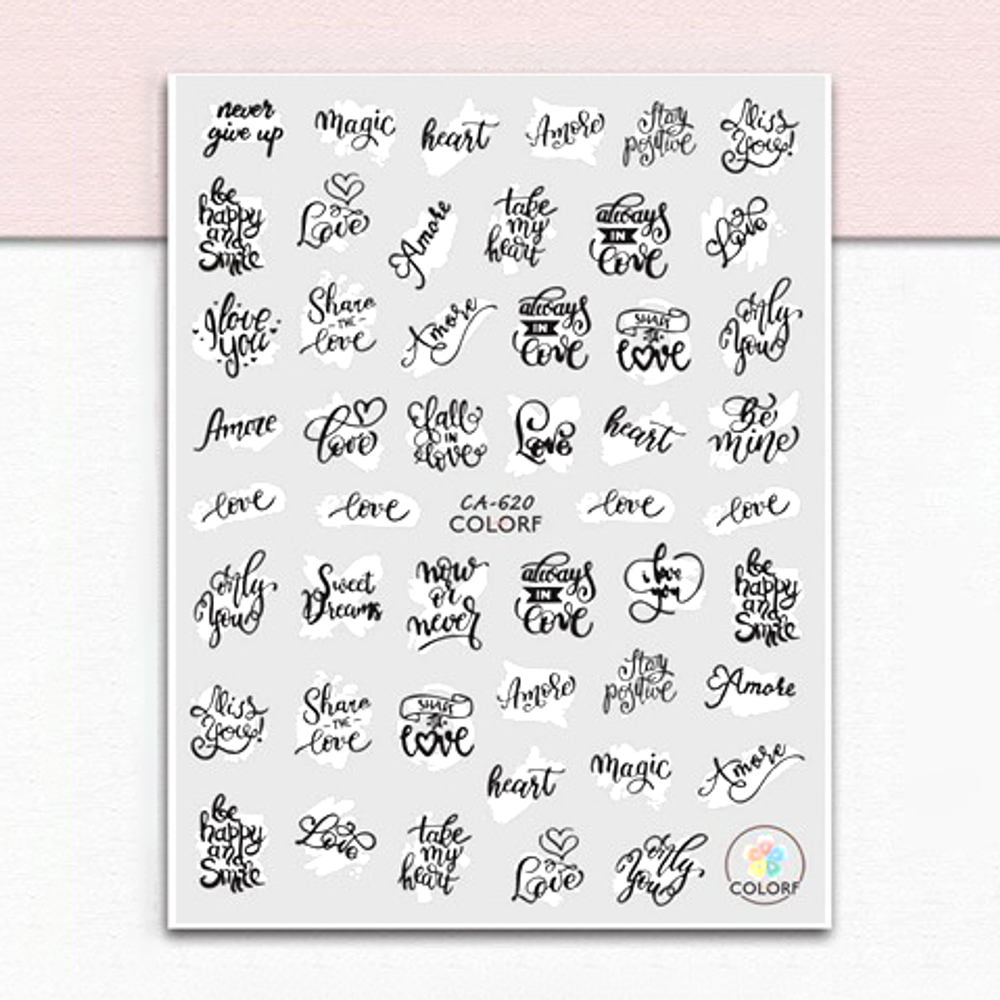 never
give up
magic
heart
Amore
Stay
positive
Miss
You!
be
happy
and
Smile
Love
Amore
take
my
heart
always
IN
love
Love
I love
you
Share
- THE -
love
Amore
always
IN
love
SHARE
the
love
Only
You
Amore
love
fall
IN
love
Love
heart
Be
mine
love
love
CA-620
COLORF
love
love
Only
You
Sweet
Dreams
now
or
never
always
IN
love
i love
you
be
happy
and
Smile
Miss
You!
Share
- THE -
love
SHARE
the
love
Amore
Stay
positive
Amore
heart
magic
Amore
be
happy
and
Smile
Love
take
my
heart
Love
Only
You
COLORF